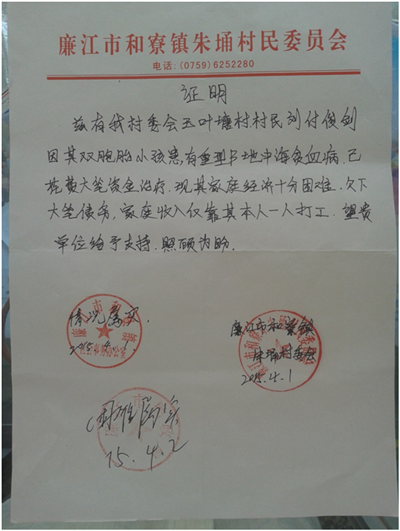 廉江市和寮镇朱埇村民委员会
电话:(0759)6252280
证明
兹有我村委会玉叶塘村村民刘付俊剑
因其双胞胎小孩患有重型β地中海贫血病,已
花费大笔资金治疗.现其家庭经济十分困难.欠下
大笔债务,家庭收入仅靠其本人一人打工.望贵
单位给予支持.照顾为盼.
情况属实
2015.4.1
廉江市和寮镇
朱埇村委会
2015.4.1
属实
15.4.2